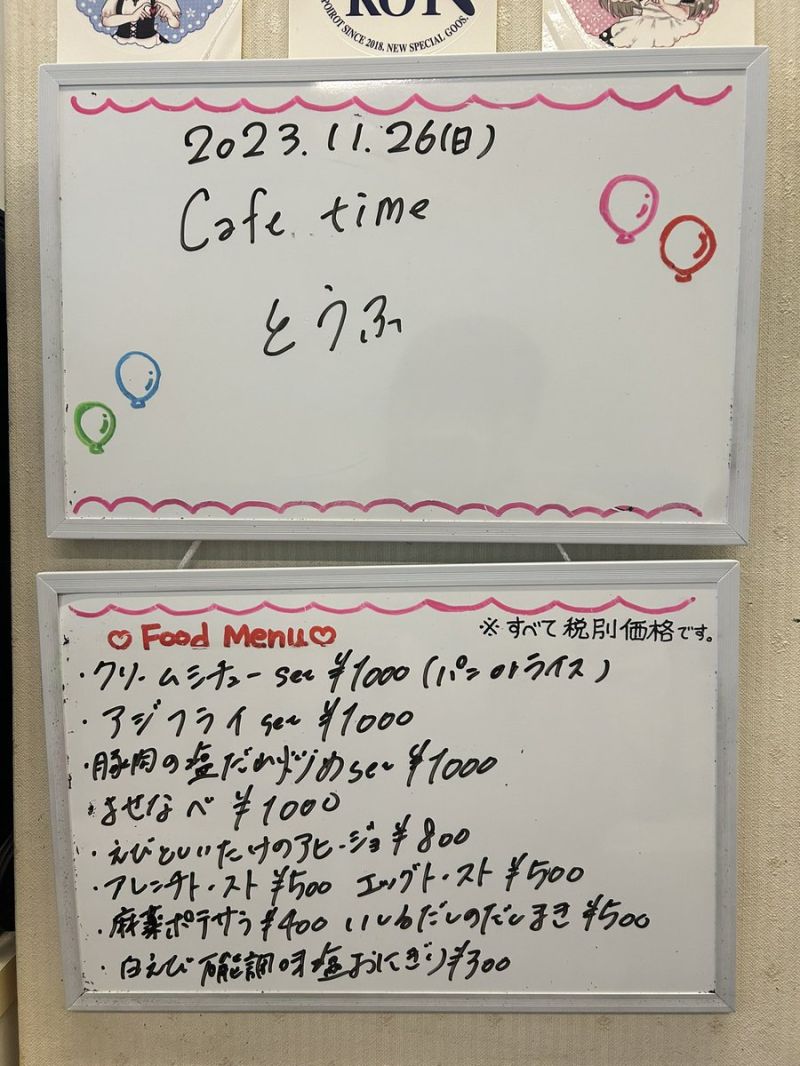 POIROT SINCE 2018. NEW SPECIAL GOOS.
2023.11.26(日)
Cafe time
とうふ
Food Menu
※すべて税別価格です。
・クリームシチューset ¥1000 (パンorライス)
・アジフライset ¥1000
・豚肉の塩だれ炒めset ¥1000
よせなべ ¥1000
・えびとしいたけのアヒージョ ¥800
・フレンチトースト ¥500 エッグトースト ¥500
・麻薬ポテサラ ¥400 いしるだしのだしまき ¥500
・白えび 万能調味塩おにぎり ¥300